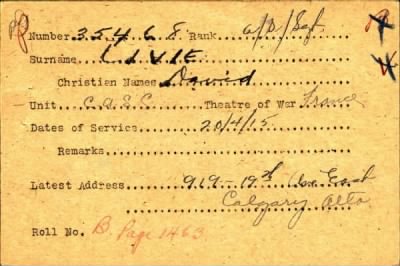 Number 35468 Rank a/S/Sgt
Surname LIVIE
Christian Names David
Unit C.A.S.C. Theatre of War France
Dates of Service 20/4/15
Remarks
Latest Address 919-19th Ave East
Calgary Alta
Roll No. B. Page 1463